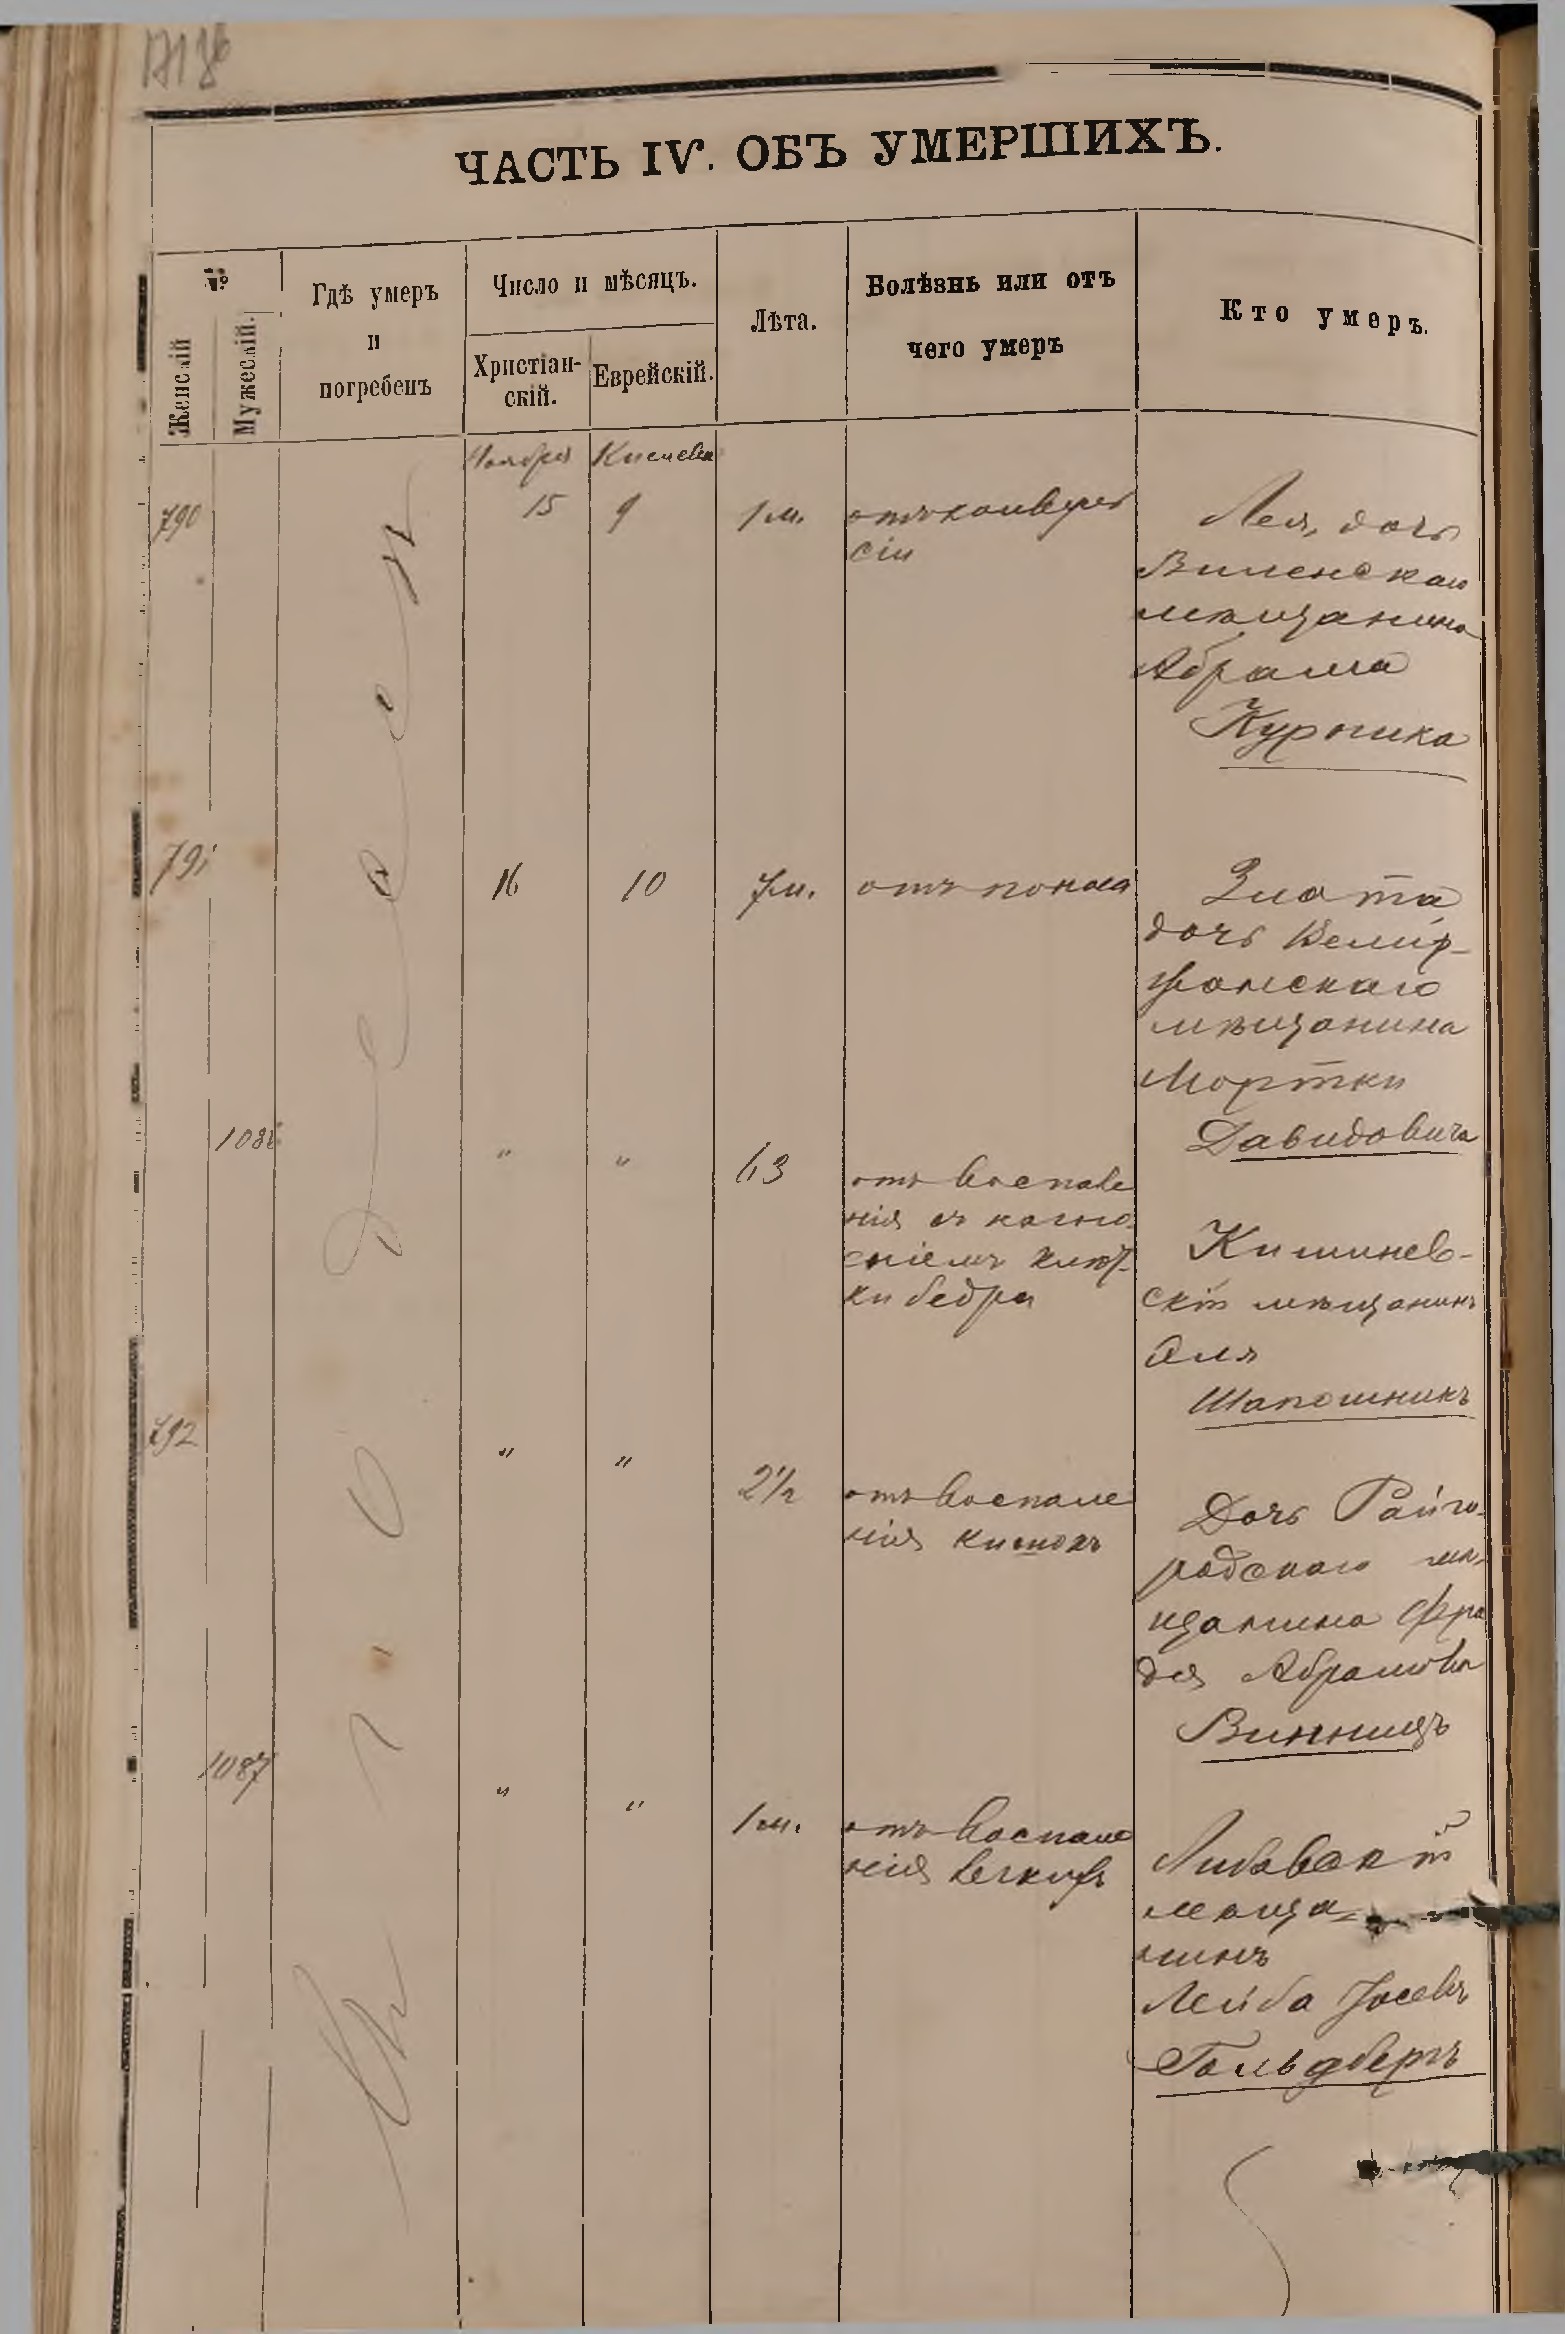 ЧАСТЬ IV. ОБЪ УМЕРШИХЪ.
№
Женскій
Мужескій.
Гдѣ умеръ
и
погребенъ
Число и мѣсяцъ.
Христіан-
скій.
Еврейскій.
Лѣта.
Болѣзнь или отъ
чего умеръ
Кто умеръ.
Ноября Кислева
790 15 9 1 м. отъ конвуль
сіи
Лея, дочь
Виленскаго
мѣщанина
Абрама
Курника
791 16 10 7 м. отъ поноса
Злота
дочь Вели
мѣщанина
Мортки
Давидовича
1086 " " 63 отъ воспале
нія съ нагно
еніемъ клѣт-
ки бедра
Кишинев-
скій мѣщанинъ
Эля
Шапошникъ
792 " " 2½ отъ воспале
нія кишокъ
Дочь Райго-
родскаго мѣ-
щанина Фра
дя Абрамова
Винницъ
1087 " " 1 м. отъ воспале
нія легкихъ
Либавскій
мѣща
нинъ
Лейба Іосевъ
Гольдбергъ